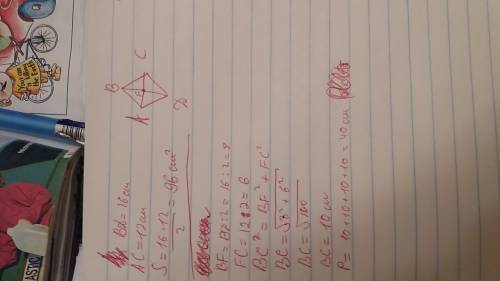 Bd = 16 cm
AC = 12 cm
S = 16 · 12 / 2 = 96 cm²
BF = BD : 2 = 16 : 2 = 8
FC = 12 : 2 = 6
BC² = BF² + FC²
BC = √8² + 6²
BC = √100
BC = 10 cm
P = 10 + 10 + 10 + 10 = 40 cm
A
B
C
D
F